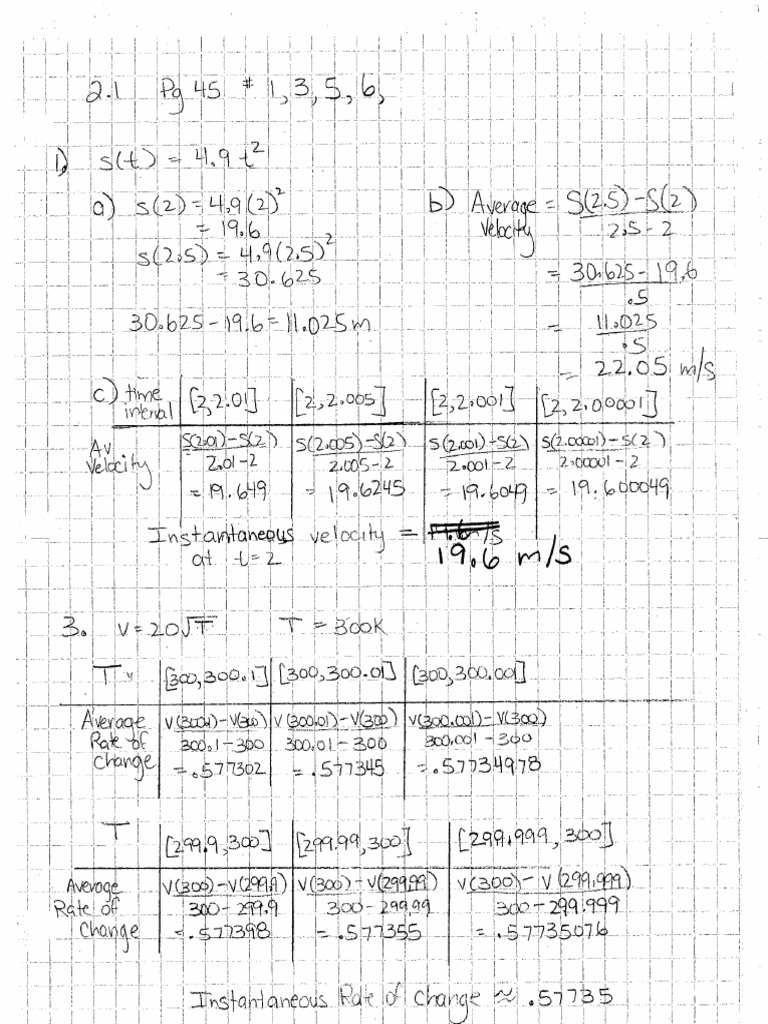 2.1 Pg 45 # 1, 3, 5, 6,
1. s(t) = 4.9 t²
a) s(2) = 4.9(2)²
= 19.6
s(2.5) = 4.9(2.5)²
= 30.625
30.625 - 19.6 = 11.025 m
b) Average Velocity = S(2.5) - S(2) / 2.5 - 2
= 30.625 - 19.6 / .5
= 11.025 / .5
= 22.05 m/s
c) time interval | [2, 2.01] | [2, 2.005] | [2, 2.001] | [2, 2.00001]
Av Velocity | S(2.01) - S(2) / 2.01 - 2 | S(2.005) - S(2) / 2.005 - 2 | S(2.001) - S(2) / 2.001 - 2 | S(2.00001) - S(2) / 2.00001 - 2
= 19.649 | = 19.6245 | = 19.6049 | = 19.600049
Instantaneous velocity = 19.6 m/s
at t = 2
3. v = 20√T T = 300K
T | [300, 300.1] | [300, 300.01] | [300, 300.001]
Average Rate of Change | V(300.1) - V(300) / 300.1 - 300 | V(300.01) - V(300) / 300.01 - 300 | V(300.001) - V(300) / 300.001 - 300
= .577302 | = .577345 | = .57734978
T | [299.9, 300] | [299.99, 300] | [299.999, 300]
Average Rate of Change | V(300) - V(299.9) / 300 - 299.9 | V(300) - V(299.99) / 300 - 299.99 | V(300) - V(299.999) / 300 - 299.999
= .577398 | = .577355 | = .57735076
Instantaneous Rate of Change ≈ .57735